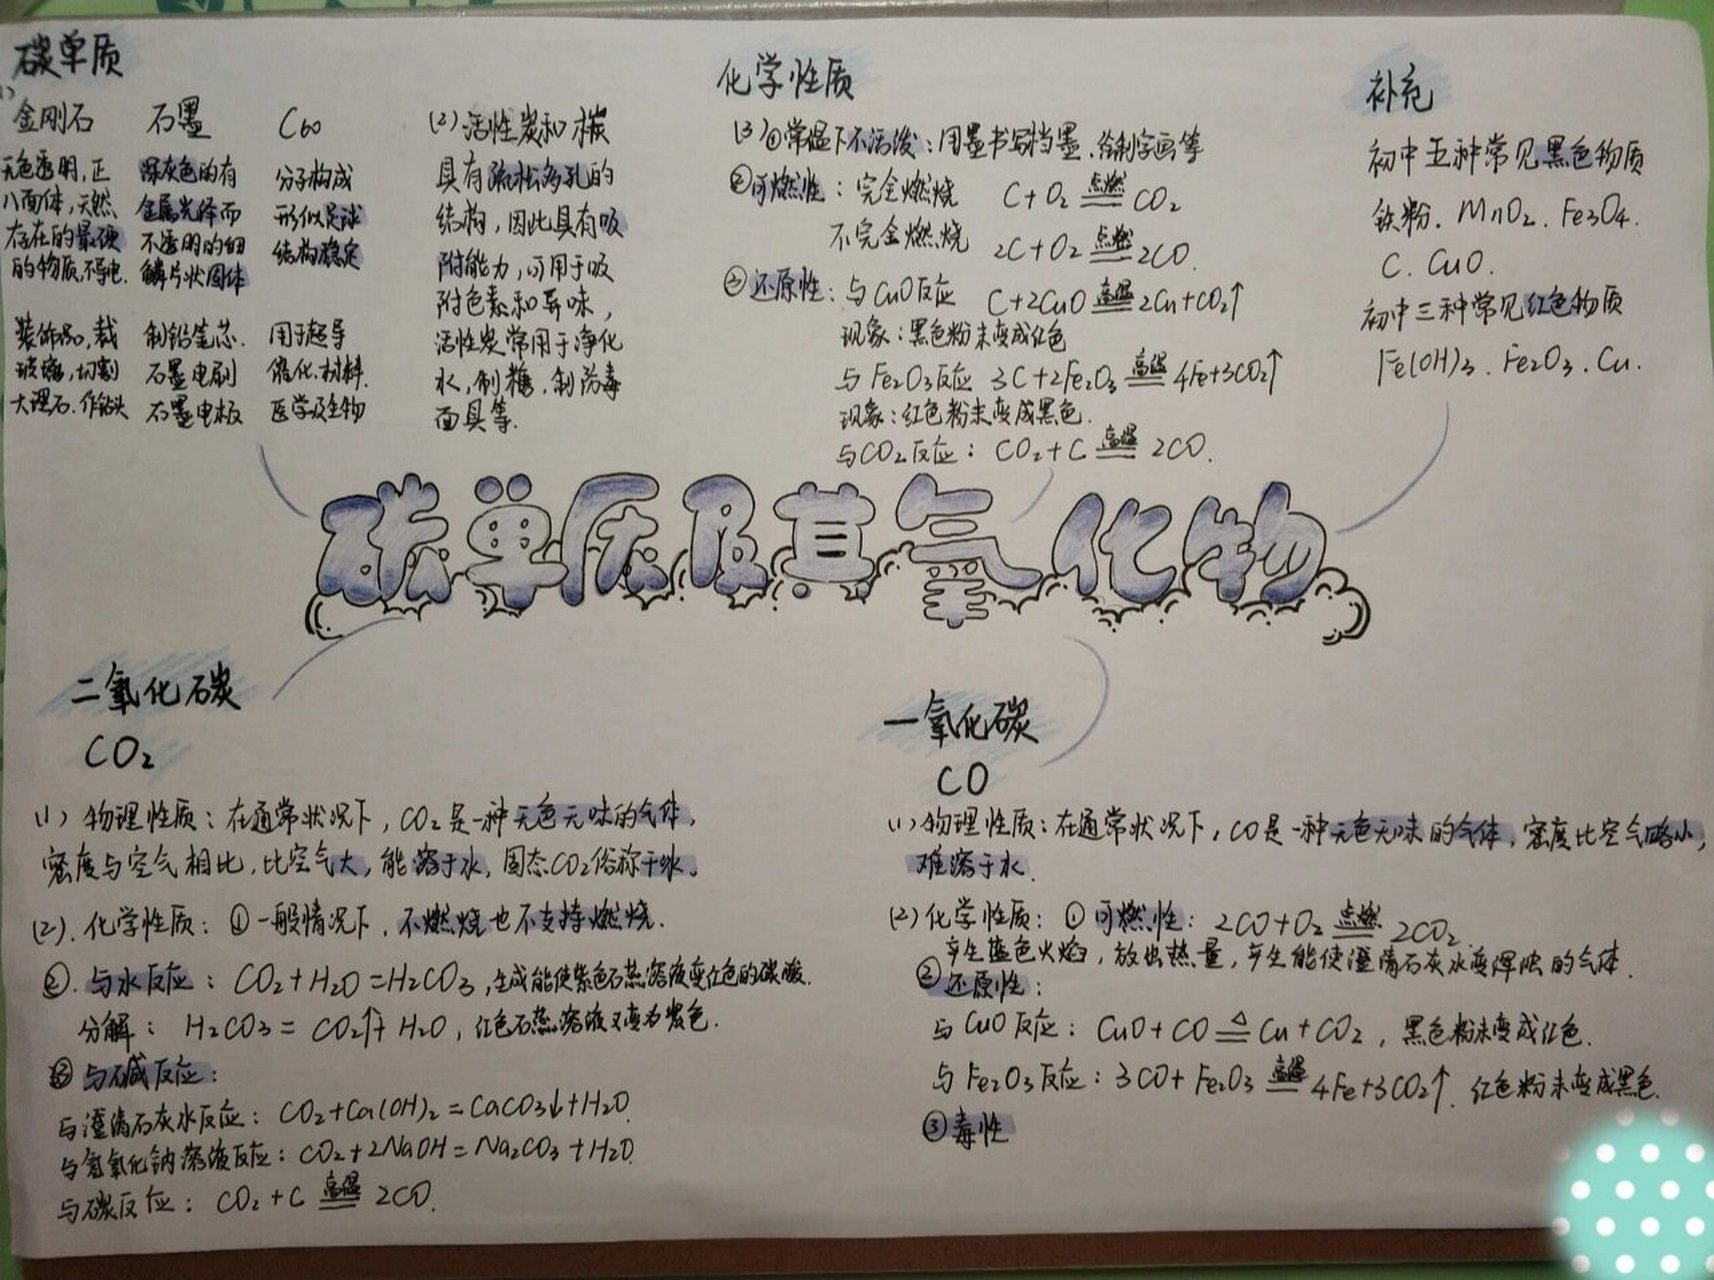 碳单质
(1)
金刚石
无色透明,正
八面体,天然
存在的最硬
的物质,不导电.
装饰品,裁
玻璃,切割
大理石.作钻头
石墨
深灰色的有
金属光泽而
不透明的细
鳞片状固体
制铅笔芯.
石墨电刷
石墨电极
C60
分子构成
形似足球
结构稳定
用于超导
催化.材料.
医学及生物
(2)活性炭和木炭
具有疏松多孔的
结构,因此具有吸
附能力,可用于吸
附色素和异味,
活性炭常用于净化
水,制糖.制防毒
面具等.
化学性质
(3)①常温下不活泼:用墨书写档案.绘制字画等
②可燃性: 完全燃烧 C+O₂ 点燃 CO₂
不完全燃烧 2C+O₂ 点燃 2CO.
③还原性:与CuO反应 C+2CuO 高温 2Cu+CO₂↑
现象:黑色粉末变成红色
与Fe₂O₃反应 3C+2Fe₂O₃ 高温 4Fe+3CO₂↑
现象:红色粉末变成黑色.
与CO₂反应: CO₂+C 高温 2CO.
补充
初中五种常见黑色物质
铁粉.MnO₂.Fe₃O₄.
C.CuO.
初中三种常见红色物质
Fe(OH)₃.Fe₂O₃.Cu.
碳单质及其氧化物
二氧化碳
CO₂
(1) 物理性质:在通常状况下,CO₂是一种无色无味的气体,
密度与空气相比,比空气大,能溶于水,固态CO₂俗称干冰。
(2).化学性质: ①一般情况下,不燃烧也不支持燃烧.
②.与水反应: CO₂+H₂O=H₂CO₃,生成能使紫色石蕊溶液变红色的碳酸.
分解: H₂CO₃= CO₂↑+H₂O,红色石蕊溶液又变为紫色.
③与碱反应:
与澄清石灰水反应: CO₂+Ca(OH)₂=CaCO₃↓+H₂O.
与氢氧化钠溶液反应: CO₂+2NaOH=Na₂CO₃+H₂O.
与碳反应: CO₂+C 高温 2CO.
一氧化碳
CO
(1)物理性质:在通常状况下,CO是一种无色无味的气体,密度比空气略小,
难溶于水.
(2)化学性质: ①可燃性: 2CO+O₂ 点燃 2CO₂.
产生蓝色火焰,放出热量,产生能使澄清石灰水变浑浊的气体.
②还原性:
与CuO反应: CuO+CO △ Cu+CO₂,黑色粉末变成红色.
与Fe₂O₃反应:3CO+Fe₂O₃ 高温 4Fe+3CO₂↑.红色粉末变成黑色.
③毒性